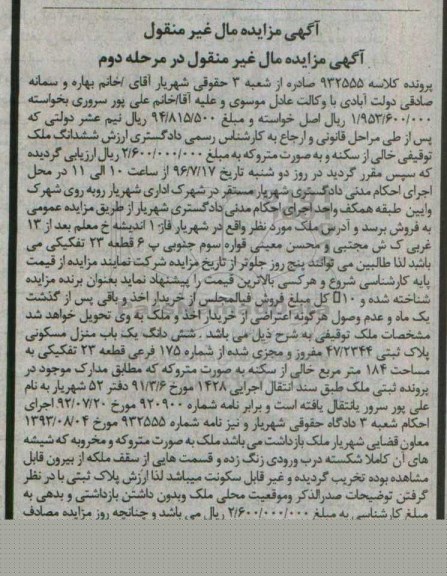 آگهی مزایده مال غیر منقول
آگهی مزایده مال غیر منقول در مرحله دوم
پرونده کلاسه ۹۳۲۵۵۵ صادره از شعبه ۳ حقوقی شهریار آقای /خانم بهاره و سمانه
صادقی دولت آبادی با وکالت عادل موسوی و علیه آقا/خانم علی پور سروری بخواسته
۱/۹۵۳/۶۰۰/۰۰۰ ریال اصل خواسته و مبلغ ۹۴/۸۱۵/۵۰۰ ریال نیم عشر دولتی که
پس از طی مراحل قانونی و ارجاع به کارشناس رسمی دادگستری ارزش ششدانگ ملک
توقیفی خالی از سکنه و به صورت متروکه به مبلغ ۲/۶۰۰/۰۰۰/۰۰۰ ریال ارزیابی گردیده
که سپس مقرر گردید در روز دو شنبه تاریخ ۹۶/۷/۱۷ از ساعت ۱۰ الی ۱۱ در محل
اجرای احکام مدنی دادگستری شهریار مستقر در شهرک اداری شهریار روبه روی شهرک
وایین طبقه همکف واحد اجرای احکام مدنی دادگستری شهریار از طریق مزایده عمومی
به فروش برسد و آدرس ملک مورد نظر واقع در شهریار فاز ۱ اندیشه خ معلم بعد از ۱۳
غربی ک ش مجتبی و محسن معینی قواره سوم جنوبی پ ۶ قطعه ۲۳ تفکیکی می
باشد لذا طالبین می توانند پنج روز جلوتر از تاریخ مزایده شرکت نمایند مزایده از قیمت
پایه کارشناسی شروع و هرکسی بالاترین قیمت را پیشنهاد نماید بعنوان برنده مزایده
شناخته شده و ۱۰□ کل مبلغ فروش فیالمجلس از خریدار اخذ و باقی پس از گذشت
یک ماه و عدم وصول هرگونه اعتراضی از خریدار اخذ و ملک به وی تحویل خواهد شد
مشخصات ملک توقیفی به شرح ذیل می باشد . شش دانگ یک باب منزل مسکونی
پلاک ثبتی ۴۷/۲۳۴۴ مفروز و مجزی شده از شماره ۱۷۵ فرعی قطعه ۲۳ تفکیکی به
مساحت ۱۸۴ متر مربع خالی از سکنه به صورت متروکه که مطابق مدارک موجود در
پرونده ثبتی ملک طبق سند انتقال اجرایی ۱۴۲۸ مورخ ۹۱/۳/۶ دفتر ۵۲ شهریار به نام
علی پور سرور یانتقال یافته است و برابر نامه شماره ۹۲۰۹۰۰ مورخ ۹۲/۰۷/۲۰ اجرای
احکام شعبه ۳ دادگاه حقوقی شهریار و نیز نامه شماره ۹۳۲۵۵۵ مورخ ۱۳۹۳/۰۸/۰۴
معاون قضایی شهریار ملک بازداشت می باشد ملک به صورت متروکه و مخروبه که شیشه
های آن کاملا شکسته درب ورودی زنگ زده و قسمت هایی از سقف ملکه از بیرون قابل
مشاهده بوده تخریب گردیده و غیر قابل سکونت میباشد لذا ارزش پلاک ثبتی با در نظر
گرفتن توضیحات صدرالذکر وموقعیت محلی ملک وبدون داشتن بازداشتی و بدهی به
مبلغ کارشناسی به مبلغ ۲/۶۰۰/۰۰۰/۰۰۰ ریال می باشد و چنانچه روز مزایده مصادف